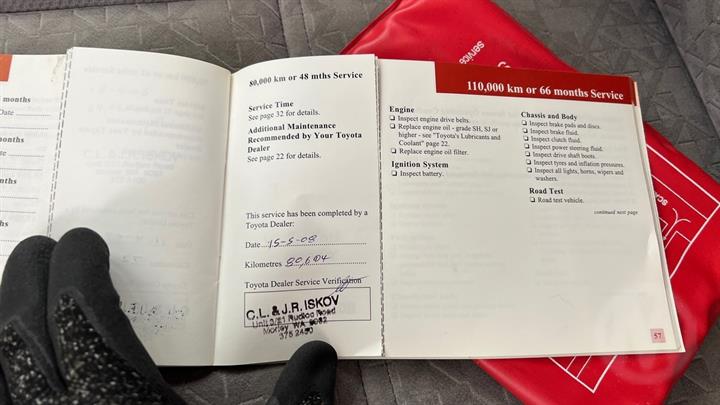 months
Date
nths
Date
months
Date
nths
80,000 km or 48 mths Service
Service Time
See page 32 for details.
Additional Maintenance
Recommended by Your Toyota
Dealer
See page 22 for details.
This service has been completed by a
Toyota Dealer:
Date 15-5-08
Kilometres 80,604
Toyota Dealer Service Verification
C.L. & J.R. ISKOV
Morley WA 6062
375 2450
110,000 km or 66 months Service
Engine
❏ Inspect engine drive belts.
❏ Replace engine oil - grade SH, SJ or
higher - see "Toyota's Lubricants and
Coolant" page 22.
❏ Replace engine oil filter.
Ignition System
❏ Inspect battery.
Chassis and Body
❏ Inspect brake pads and discs.
❏ Inspect brake fluid.
❏ Inspect clutch fluid.
❏ Inspect power steering fluid.
❏ Inspect drive shaft boots.
❏ Inspect tyres and inflation pressures.
❏ Inspect all lights, horns, wipers and
washers.
Road Test
❏ Road test vehicle.
continued next page
57
service